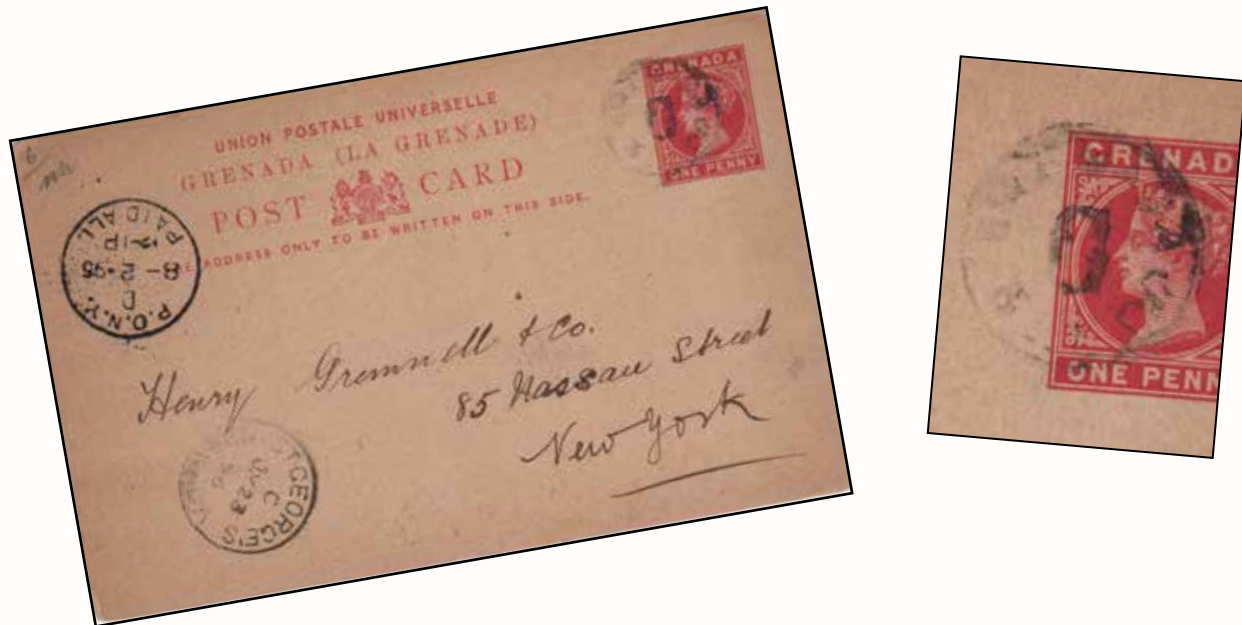 UNION POSTALE UNIVERSELLE
GRENADA (LA GRENADE)
POST CARD
ADDRESS ONLY TO BE WRITTEN ON THIS SIDE.
GRENADA
ONE PENNY
6
P.O.N.Y.
D
8-2-95
12-1P
PAID ALL
Henry Gremnell & Co.
85 Nassau Street
New York
T.GEORGE'S
C
JY 23
95
GRENAD
ONE PENN